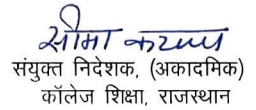 सीमा कश्यप
संयुक्त निदेशक, (अकादमिक)
कॉलेज शिक्षा, राजस्थान